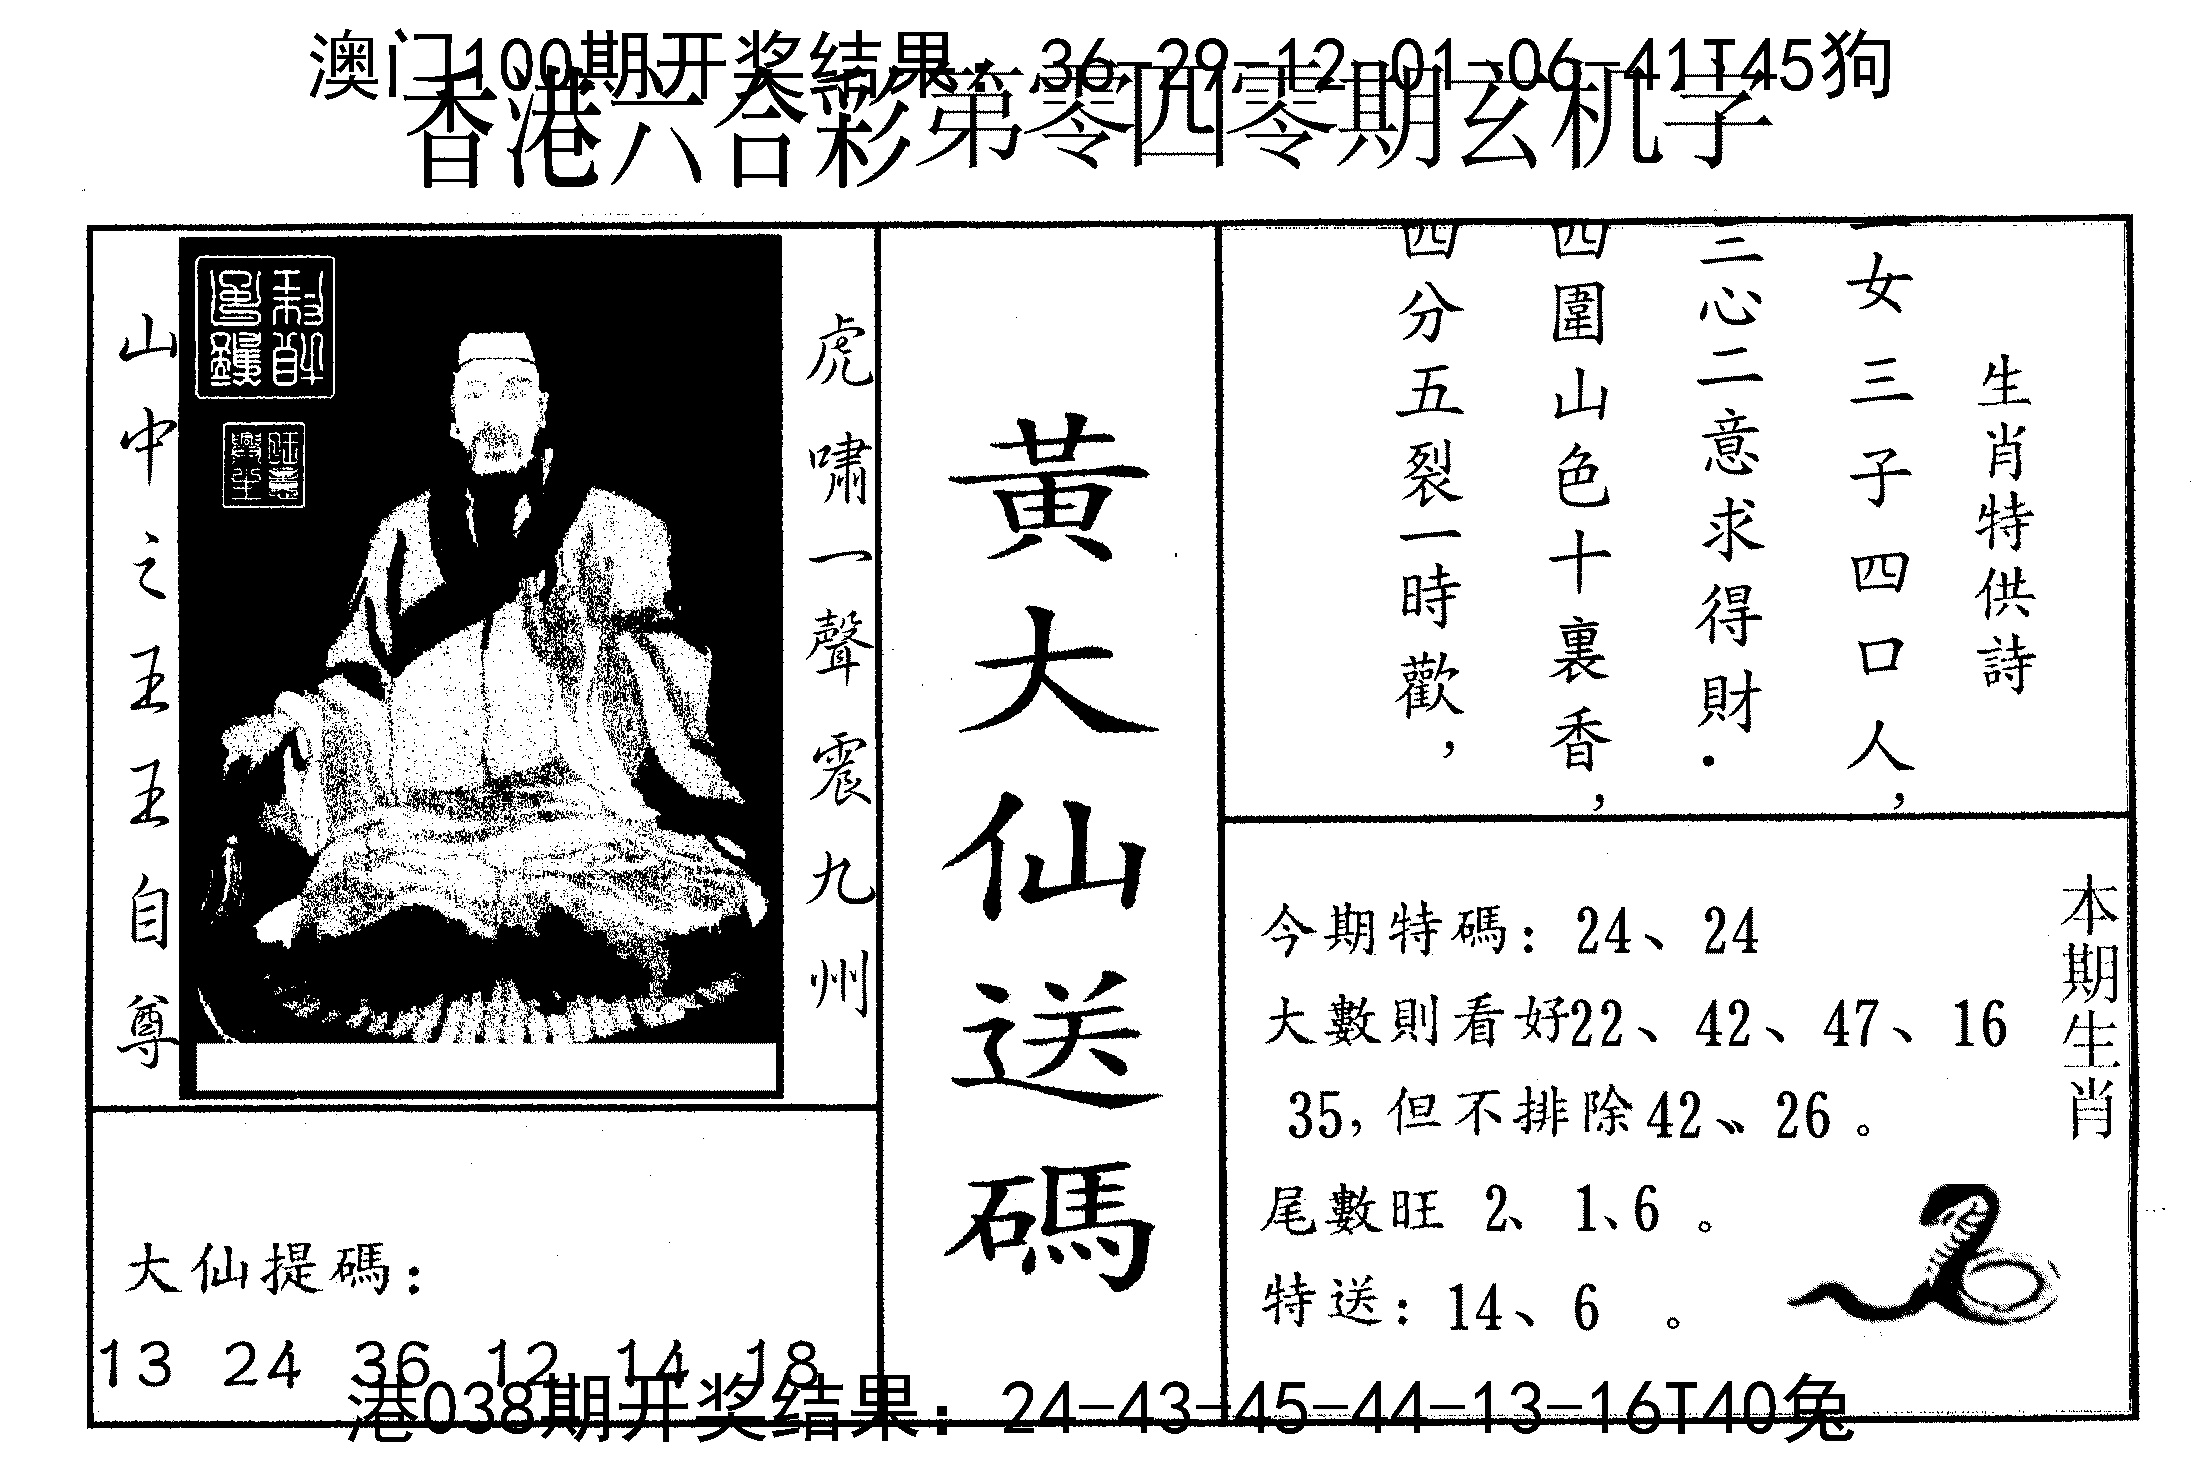 澳门100期开奖结果：36-29-12-01-06-41T45狗
香港六合彩第零四零期玄机字
山中之王王自尊
虎嘯一聲震九州
黃大仙送碼
生肖特供詩
一女三子四口人，
三心二意求得財.
四圍山色十裏香，
四分五裂一時歡，
本期生肖
今期特碼：24、24
大數則看好22、42、47、16
35,但不排除42、26。
尾數旺 2、1、6。
特送：14、6 。
大仙提碼：
13 24 36 12 14 18
港038期开奖结果：24-43-45-44-13-16T40兔